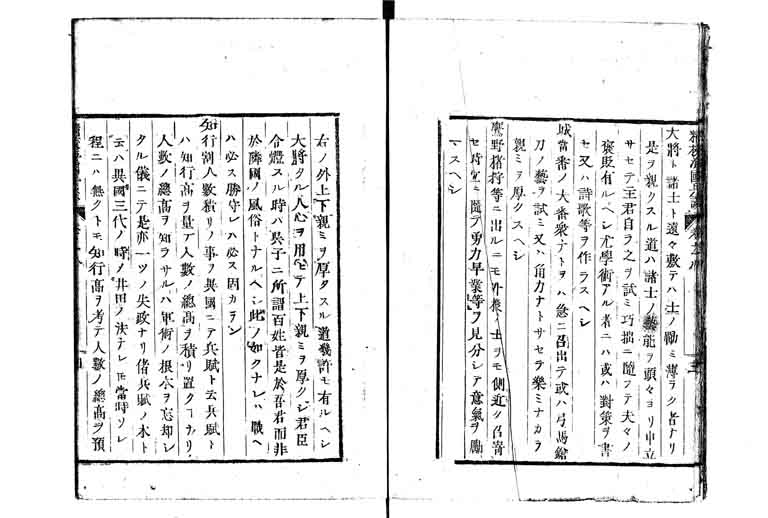 大將ト諸士ト遠々敷テハ士ノ勵ミ薄ヲク者ナリ
是ヲ親クスル道ハ諸士ノ藝能ヲ頭々ヨリ申立
サセテ主君自ラ之ヲ試ミ巧拙ニ隨フテ夫々ノ
褒貶有ルヘシ尤學術アル者ニハ或ハ對策ヲ書
セ又ハ詩歌等ヲ作ラスヘシ
城當番ノ大番衆ナトヲハ急ニ召出テ或ハ弓馬鎗
刀ノ藝ヲ試ミ又ハ角力ナトサセテ樂ミナカラ
親ミヲ厚クスヘシ
鷹野猪狩等ニ出ルニモ外樣ノ士ヲモ側近ク召寄
セ時宜ニ隨テ勇力早業等ヲ見分シテ意氣ヲ勵
マスヘシ
右ノ外上下親ミヲ厚クスル道幾許モ有ルヘシ
大將タル人心ヲ用ヒテ上下親ミヲ厚クシ君臣
令燈スル時ハ呉子ニ所謂百姓皆是於吾君而非
於隣國ノ風俗トナルヘシ此ノ如クナレハ戰ヘ
ハ必ス勝守レハ必ス固カラン
知行割人數積リノ事ハ異國ニテ兵賦ト云兵賦ト
ハ知行高ヲ量テ人數ノ總高ヲ積リ置クヿナリ
人數ノ總高ヲ知ラサルハ軍術ノ根本ヲ忘却シ
タル儀ニテ是亦一ツノ失政ナリ偖兵賦ノ本ト
云ハ異國三代ノ時ノ井田ノ法テレモ當時ソレ
程ニハ無クトモ知行高ヲ考テ人數ノ總高ヲ預